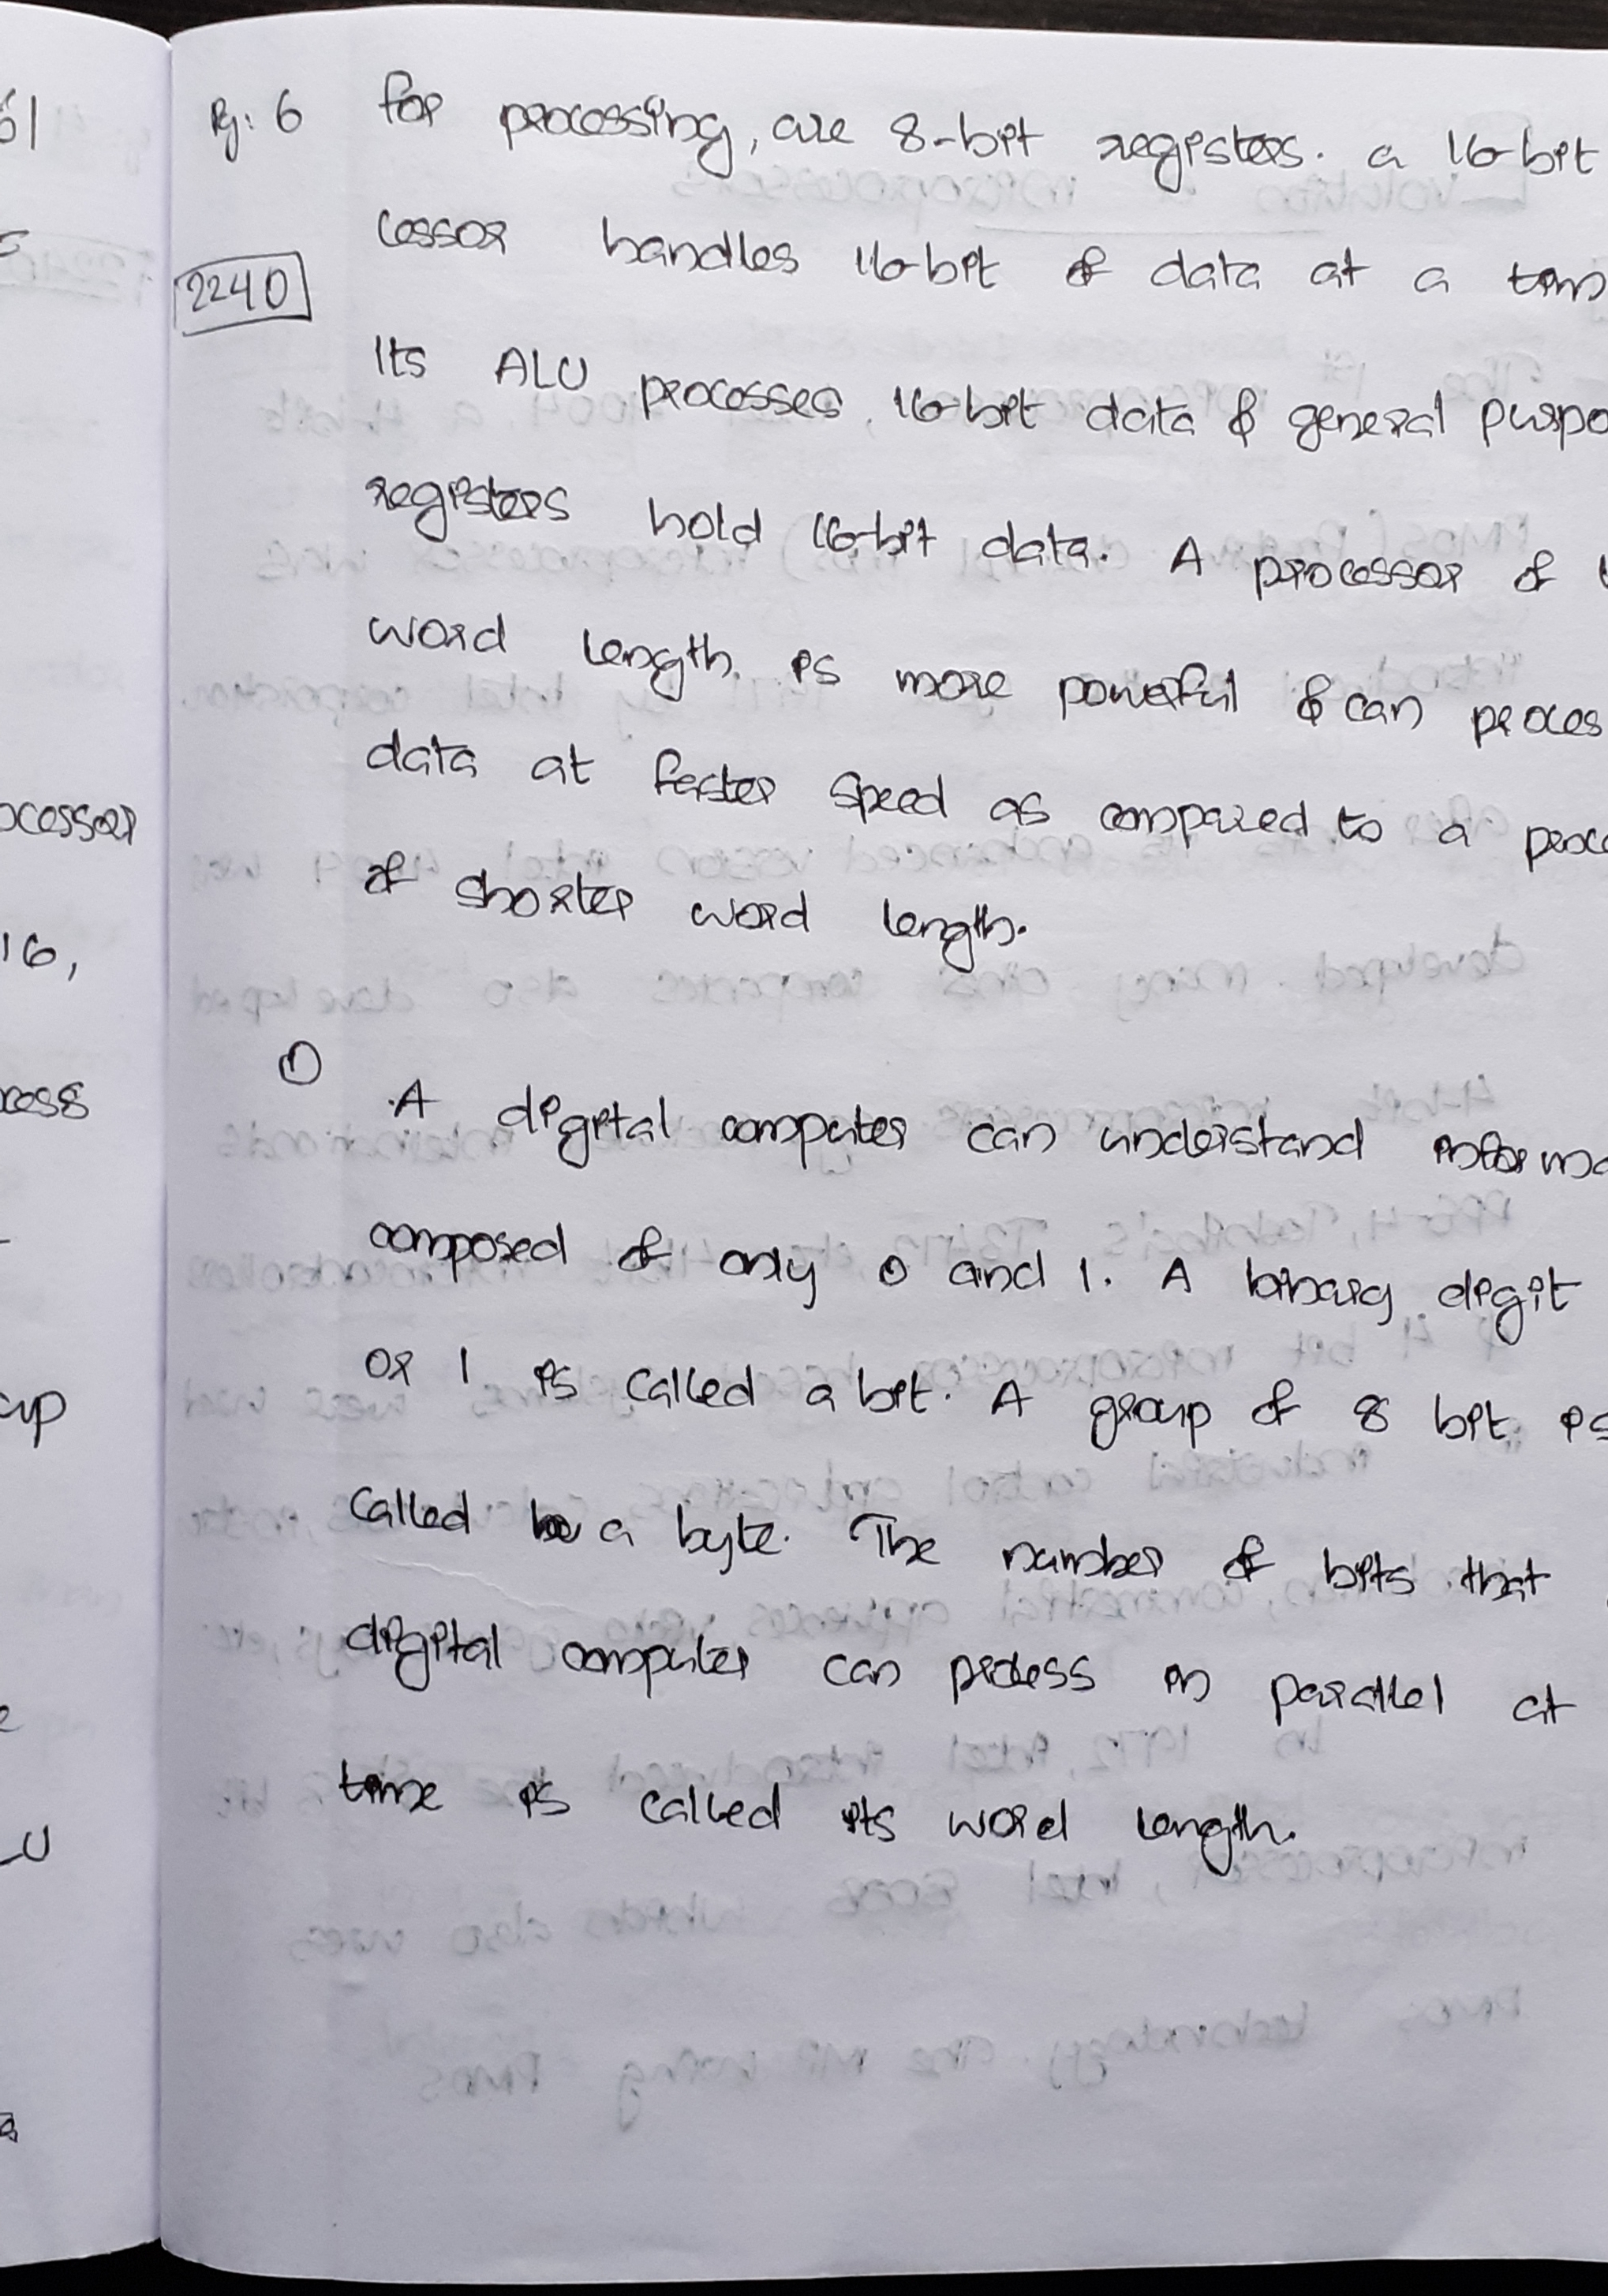 Pg: 6
2240
for processing, are 8-bit registers. a 16-bit
cessor handles 16-bit of data at a tim
Its ALU processes 16-bit data & general purpo
registers hold 16-bit data. A processor of
word length is more powerful & can proces
data at faster speed as compared to a proc
of shorter word length.
① A digital computer can understand informa
composed of only 0 and 1. A binary digit
or 1 is called a bit. A group of 8 bit is
called a byte. The number of bits that
digital computer can process in parallel at
time is called its word length.
61
ocessor
16,
cess
up
LU